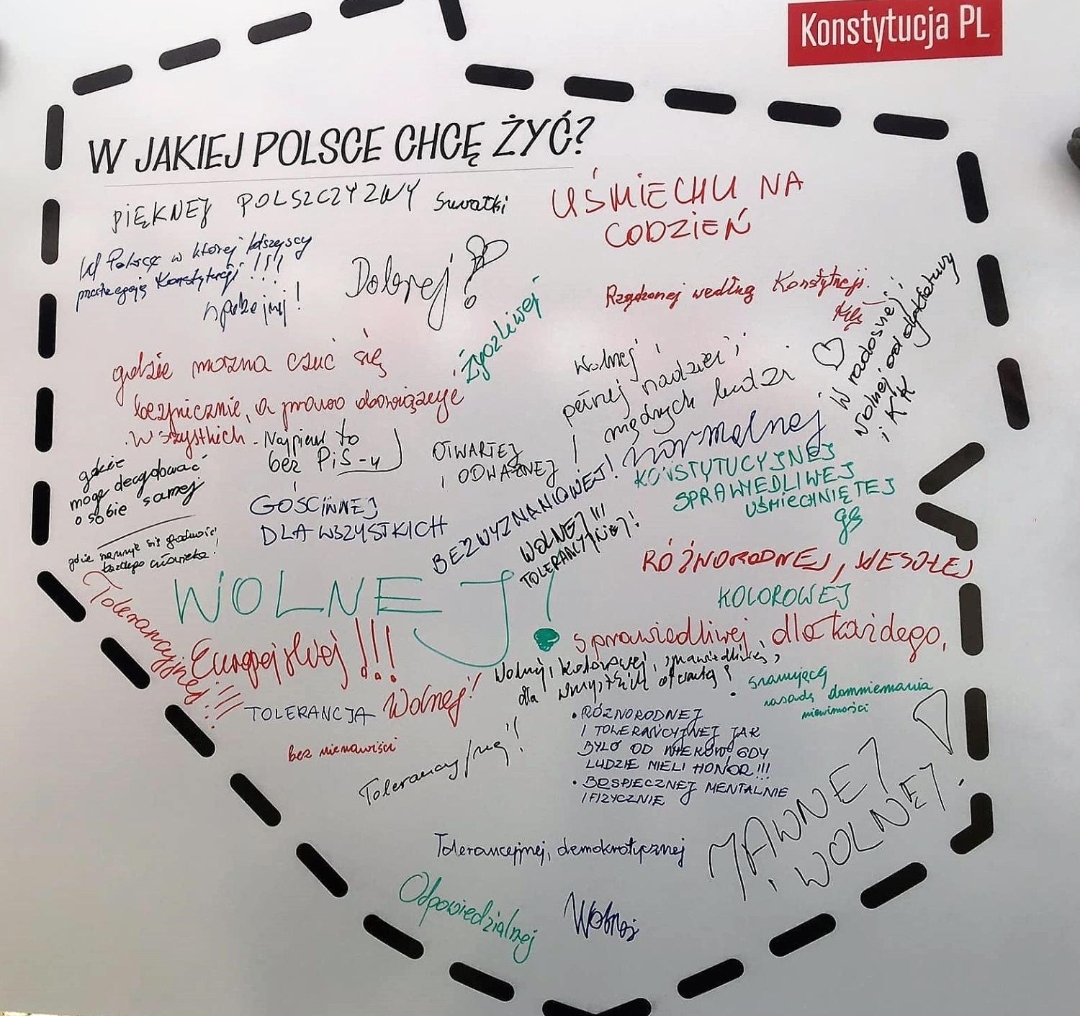 Konstytucja PL
W JAKIEJ POLSCE CHCĘ ŻYĆ?
PIĘKNEJ POLSZCZYZNY Suwałki
UŚMIECHU NA
CODZIEŃ
W Polsce w której wszyscy
przestrzegają Konstytucji!!!
spokojnej!
Dobrej!
Życzliwej
Rządzonej według Konstytucji.
W radosnej i
wolnej od dyktatury
i KK
gdzie można czuć się
bezpiecznie, a prawo obowiązuje
wszystkich.
Najpierw to
bez PiS-u
Wolnej i
pełnej nadziei i
mądrych ludzi
OTWARTEJ
I ODWAŻNEJ!
normalnej
gdzie
mogę decydować
o sobie samej
GOŚCINNEJ
DLA WSZYSTKICH
BEZWYZNANIOWEJ!
KONSTYTUCYJNEJ
SPRAWIEDLIWEJ
UŚMIECHNIĘTEJ
WOLNEJ!!!
TOLERANCYJNEJ!
gdzie szanuje się godność
każdego człowieka!
RÓŻNORODNEJ, WESOŁEJ
KOLOROWEJ
WOLNEJ!
Tolerancyjnej!!!
Europejskiej!!!
sprawiedliwej, dla każdego,
Wolnej, kolorowej, sprawiedliwej,
dla wszystkich otwartej!
szanującej
zasadę domniemania
niewinności
TOLERANCJA
Wolnej!
bez nienawiści
Tolerancyjnej!
• RÓŻNORODNEJ
I TOLERANCYJNEJ JAK
BYŁO OD WIEKÓW GDY
LUDZIE MIELI HONOR!!!
• BESPIECZNEJ MENTALNIE
I FIZYCZNIE
JAWNEJ
I WOLNEJ!
Tolerancejnej, demokratycznej
Odpowiedzialnej
Wolnej